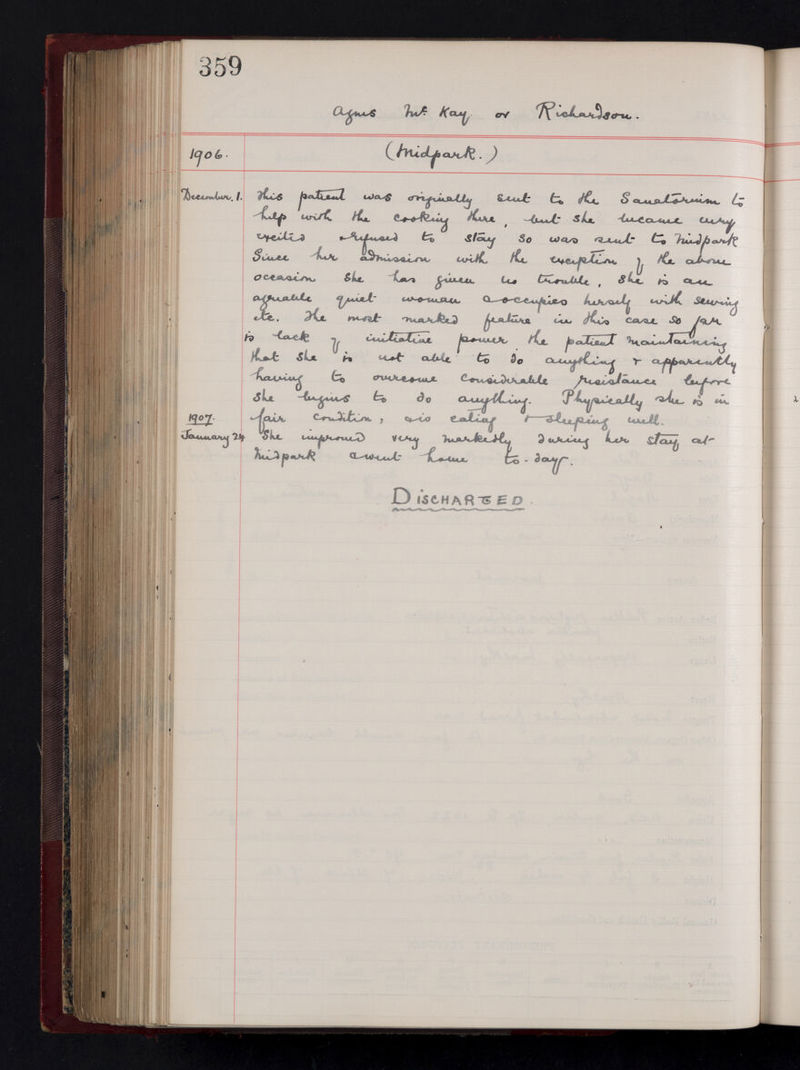 359
Agnes McKay or Richardson.
1906. (Midpark.)
December. 1. This patient was originally sent to the Sanatorium to
help with the cooking there, but she became very
excited & refused to stay so was sent to Midpark
Since her admission with the exception of the above
occasion she has given no trouble, she is an
agreeable quiet woman & occupies herself with sewing
etc. The most marked feature in this case so far
is lack of initiative power the patient maintaining
that she is not able to do anything & apparently
having to overcome considerable resistance before
she begins to do anything. Physically she is in
1907. fair condition, & is eating & sleeping well.
January 24 She improved very markedly during her stay at
Midpark & went home to-day.
DISCHARGED.